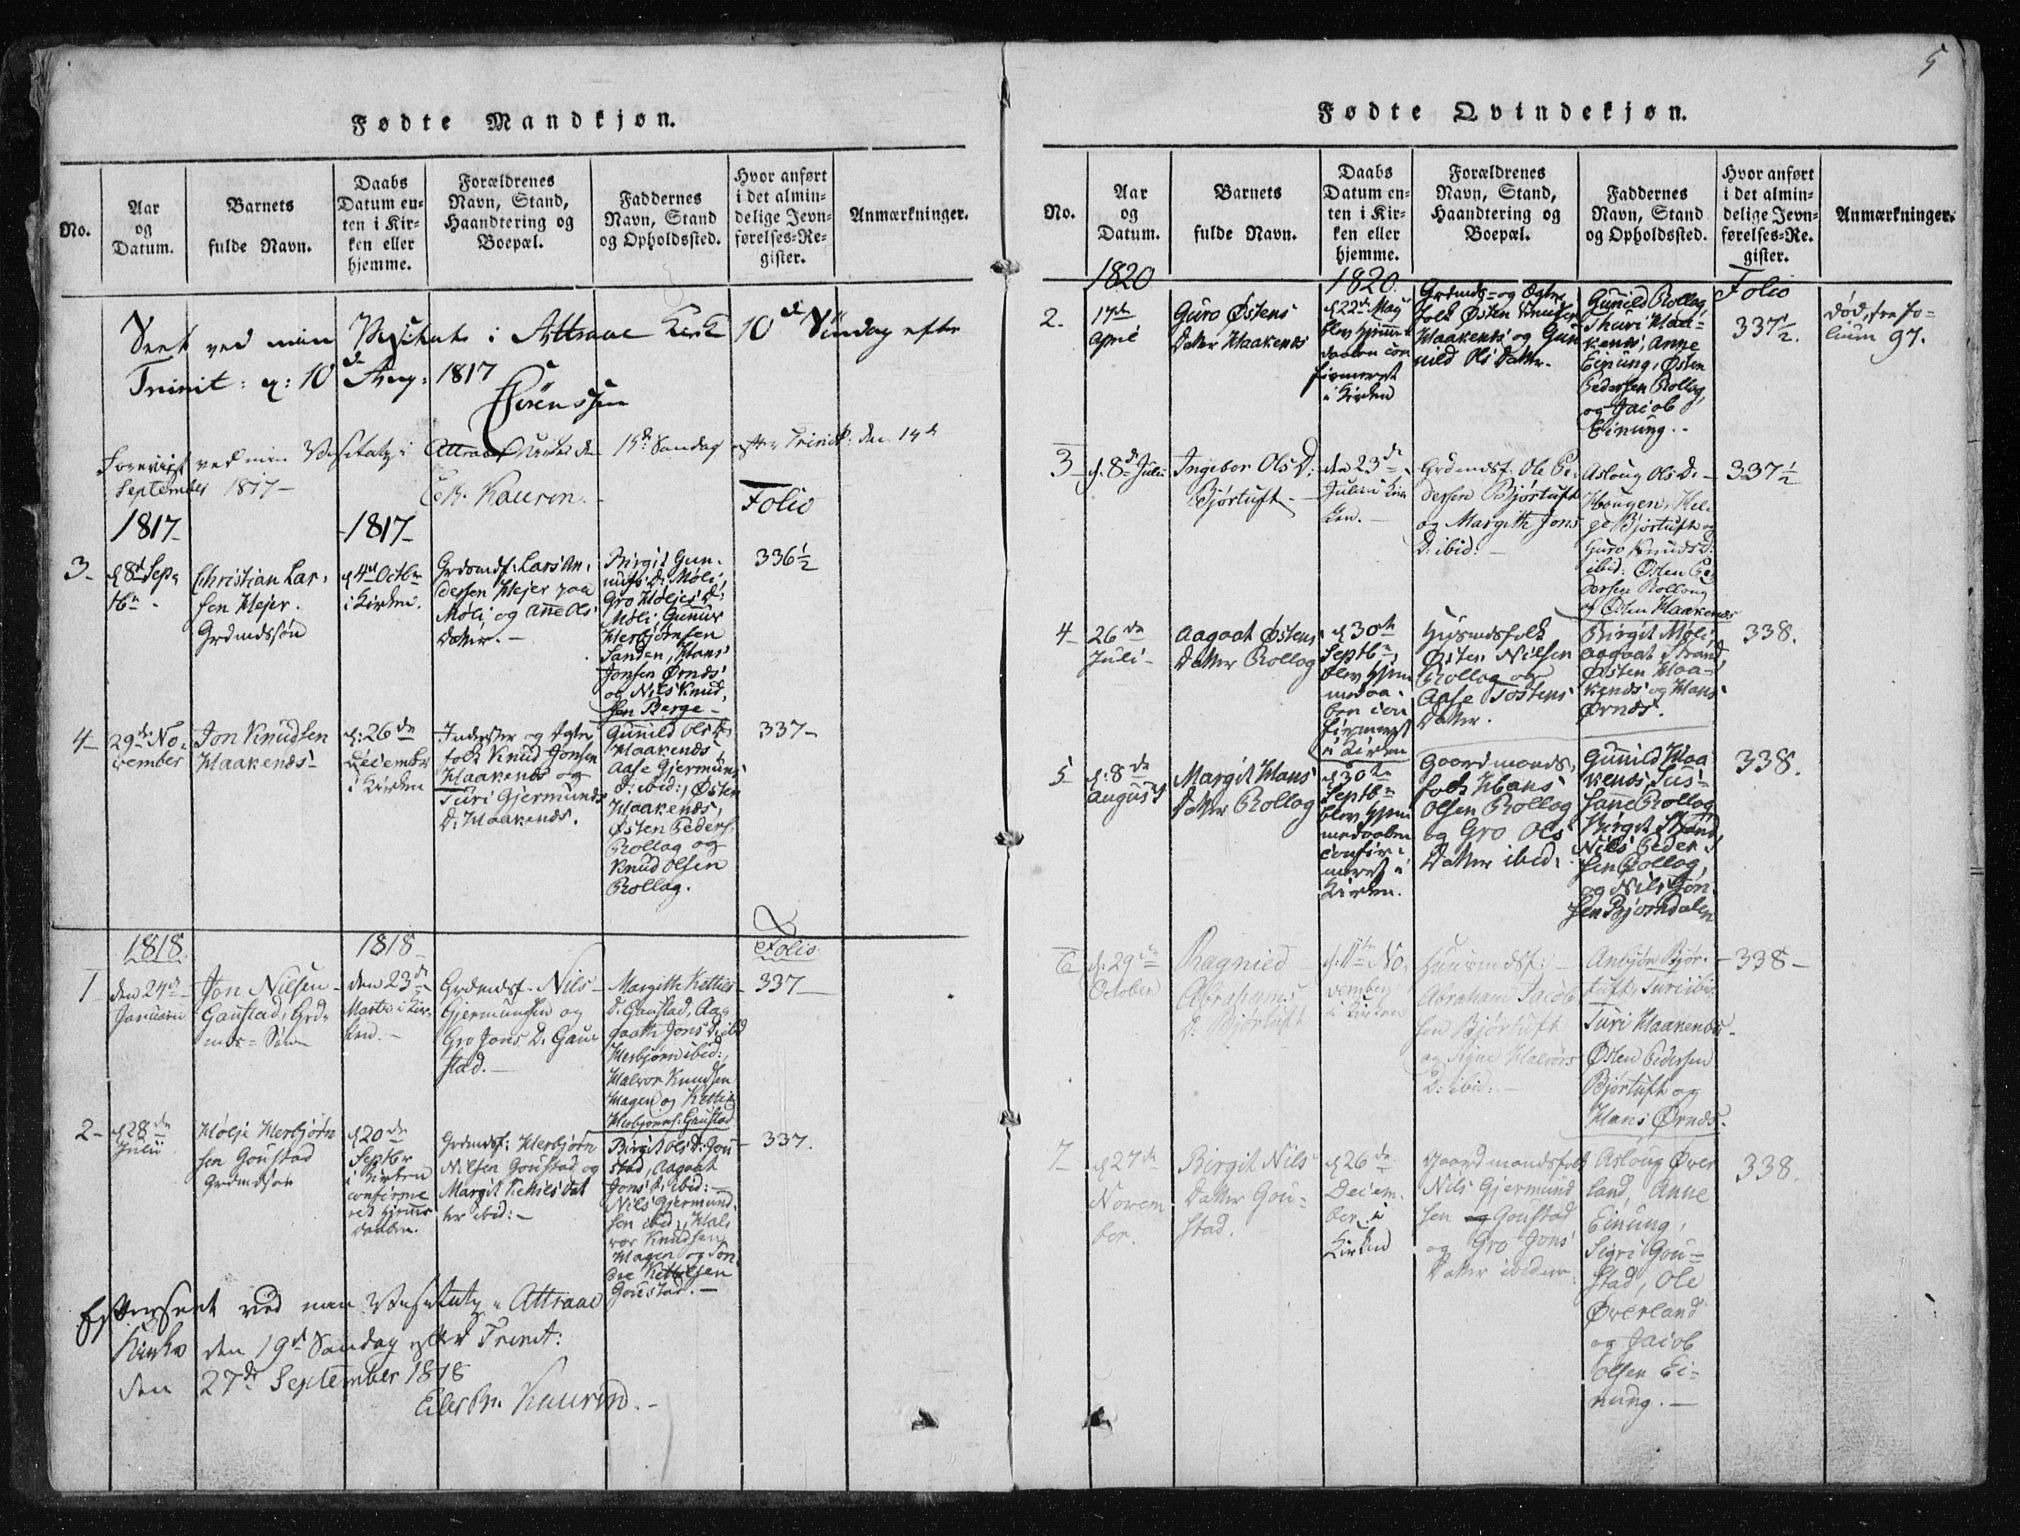 5
Fødte Mandkjøn.
No.
Aar
og
Datum.
Barnets
fulde Navn.
Daabs
Datum en-
ten i Kir-
ken eller
hjemme.
Forældrenes
Navn, Stand,
Haandtering og
Boepæl.
Faddernes
Navn, Stand
og Opholdssted.
Hvor anført
i det almin-
delige Jevn-
førelses-Re-
gister.
Anmærkninger.
Seet ved min Visitats i Attraae Kirke 10de Søndag efter
Trinit: 10de Aug: 1817
Sørenssen
ved min Visitatz i Attraae Kirke den 15de Søndag efter Trinit: den 14de
September 1817 —
Kaurin.
Folio
1817
1817
3
d 8de Sep-
tbr.
Christian Lar-
sen Mejer.
Grdmdssøn
d 4de Octbr
i Kirken.
Grdmdsf: Lars An-
dersen Mejer paa
Møli og Anne Ols
Datter. —
Birgit Gun-
nufs D: Møli,
Gro Høljes D:
Møli, Gunnuf
Herbjørnsen
Sanden, Hans
Jonsen Ørnes
og Nils Knud-
sen Berge —
336½
4
29de No-
vember
Jon Knudsen
Haakenæs
d: 26de
December
i Kirken
Inderster og Ægte-
folk Knud Jonsen
Haakenæs og
Turi Gjermunds
D: Haakenæs.
Gunild Ols D:
Haakenæs,
Aase Gjermunds
D: ibid:, Østen
Haakenæs,
Østen Peders:
Rollag og
Knud Olsen
Rollag.
337 —
1818
1818
Folio
1
den 24de
Januarii
Jon Nilsen
Gaustad, Grd-
mds-Søn
den 23de
Marts i Kir-
ken. —
Grdmdsf. Nils
Gjermundsen og
Gro Jons D. Gau-
stad. —
Margith Kettils
D. Gaustad, Aag-
aath Jons D ibid
Herbjørn ibid:,
Halvor Knudsen
Hagen og Kettil
Herbjørns: Gaustad
337
2
d 28de
Julii
Hølje Herbjørn-
sen Goustad
Grdmdsøn
d 20de
Septbr
i Kirken
confirme-
ret hjemme-
daaben.
Grdmdsf: Herbjørn
Nilsen Goustad og
Margit Kettils Dat-
ter ibid: —
Birgit Ols D: Gou-
stad, Aagaat
Jons D ibid: —
Nils Gjermund-
sen ibid:, Hal-
vor Knudsen
Hagen og Søn-
dre Kettilsen
Goustad. —
337.
Efterseet ved min Visitatz i Attraae
Kirke den 19de Søndag efter Trinit:
den 27de September 1818
Kaurin. —
Fødte Qvindekjøn.
No.
Aar
og
Datum.
Barnets
fulde Navn.
Daabs
Datum en-
ten i Kir-
ken eller
hjemme.
Forældrenes
Navn, Stand,
Haandtering og
Boepæl.
Faddernes
Navn, Stand
og Opholdssted.
Hvor anført
i det almin-
delige Jevn-
førelses-Re-
gister.
Anmærkninger.
1820
1820.
Folio
2.
17de
April
Guro Østens
Datter Haakenæs
d 22de Maij
blev hjemme-
daaben con-
firmeret
i Kirken
Grdmds- og Ægte-
folk Østen Knudsen
Haakenæs og Gun-
nild Ols Datter.
Gunild Rollag,
Thuri Haa-
kenæs, Anne
Einung, Østen
Pedersen Rollag,
og Jacob
Einung. —
337½.
Død, see fo-
lium 97.
3
d. 8de Julii
Ingebor Ols D:
Bjørtuft —
den 23de
Julii i Kir-
ken. —
Grdmdsf. Ole Pe-
dersen Bjørtuft
og Margith Jons
D. ibid: —
Asloug Ols D. —
Hougen, Hel-
ge Bjørtuft og
Guro Knuds D:
ibid: Østen Pe-
dersen Rollag
og Østen Haakenæs
337½
4
26de
Juli —
Aagaat Østens
Datter Rollag
d 30te
Septbr
blev hjem-
medaa-
ben con-
firmeret
i Kirken
Huusmdsfolk
Østen Nilsen
Rollag og
Aase Tostens
Datter.
Birgit Møli,
Aagaat Strand,
Østen Haa-
kenæs og Hans
Ørnes.
338.
5
d. 8de
August
Margit Hans
Datter Rollag
d 30te
Septbr
blev hjem-
medaaben
confir-
meret i
Kirken.
Gaardmands-
folk Hans
Olsen Rollag
og Gro Ols
Datter ibid:
Gunild Haa-
kenæs, Sus-
sane Rollag,
Birgit Strand,
Nils Peder-
sen Rollag,
og Nils Jon-
sen Bjørndalen
338.
6
d. 29de
October
Ragnied
Abrahams
D: Bjørtuft
d. 11te No-
vember
i Kirken
Huusmdsf: —
Abraham Jacob-
sen Bjørtuft
og Signe Halvors
D: ibid: —
Anbjør Bjør-
tuft, Turi ibid:
Turi Haakenæs
Østen Pedersen
Bjørtuft og
Hans Ørnes.
338 —
7
d 27de
Novem-
ber.
Birgit Nils
Datter Gou-
stad.
d 26de
Decem-
ber i
Kirken
Gaardmandsfolk
Nils Gjermund-
sen og Goustad
og Gro Jons
Datter ibidem
Asloug Øver-
land, Anne
Einung,
Sigri Gou-
stad, Ole
Øverland
og Jacob
Olsen Ei-
nung. —
338.